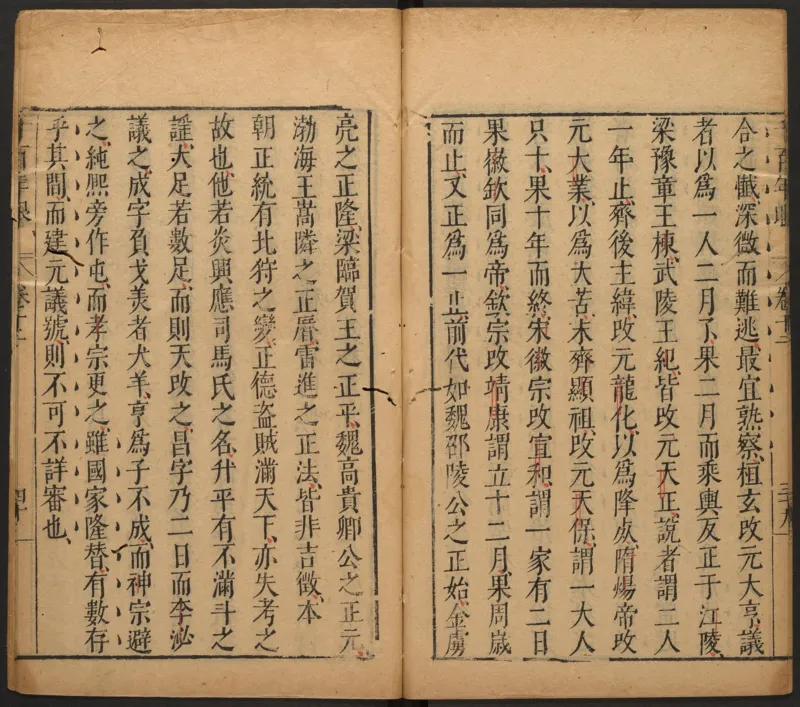 合之懺深微而難逃最宜熟察桓玄改元大亨議
者以爲一人二月了果二月而乘輿反正于江陵
梁豫章王棟武陵王紀皆改元天正說者謂二人
一年止齊後主緯改元龍化以爲降𠩄隋煬帝改
元大業以爲大苦末齊顯祖改元天保謂一大人
只十果十年而終宋徽宗改宣和謂一家有二日
果徽欽同爲帝欽宗改靖康謂立十二月果周歲
而止又正爲一止前代如魏邵陵公之正始金虜
亮之正隆梁臨賀王之正平魏高貴鄉公之正元
渤海王嵩隣之正曆雷進之正法皆非吉徵本
朝正統有北狩之變正德盜賊滿天下亦失考之
故也他若炎興應司馬氏之名升平有不滿斗之
謡大足若數足而則天改之昌字乃二日而李泌
議之成字負戈美者犬羊亨爲子不成而神宗避
之純熈旁作屯而孝宗更之雖國家隆替有數存
乎其間而建元議號則不可不詳審也